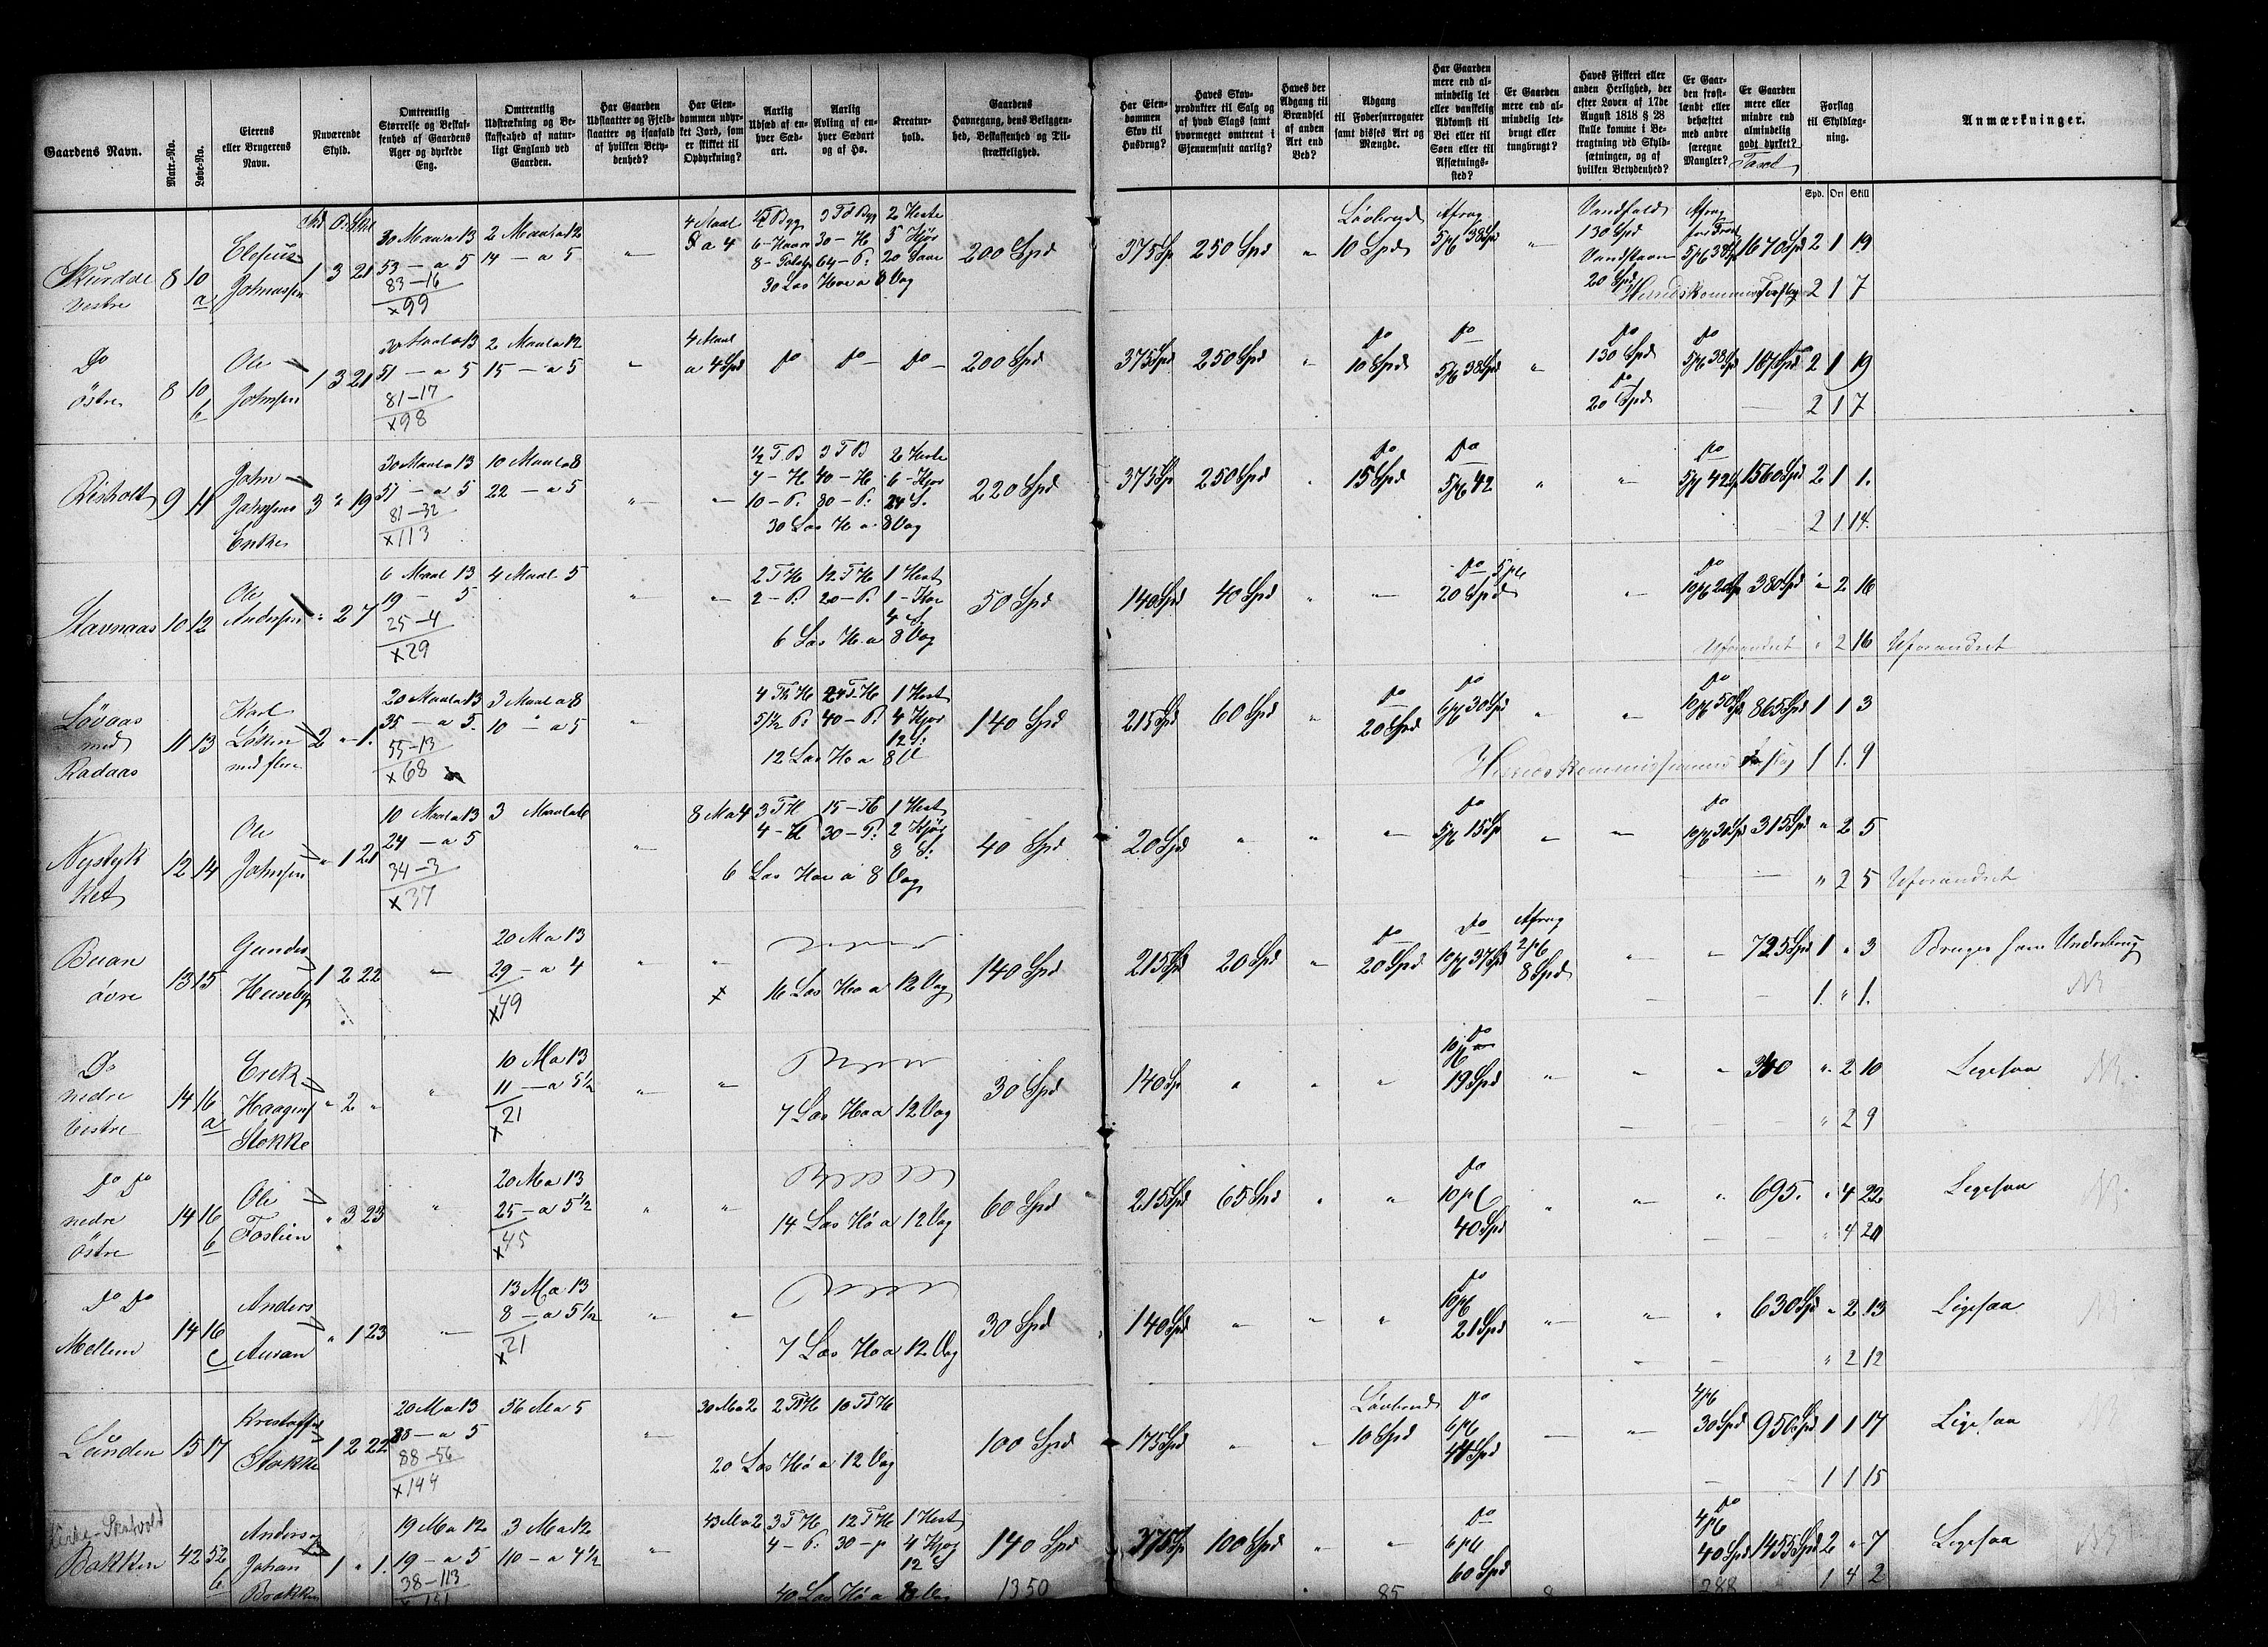 Gaardens Navn.
Matr.-No.
Løbe-No.
Eierens eller Brugerens Navn.
Nuværende Skyld.
Omtrentlig Størrelse og Beskaffenhed af Gaardens Ager og dyrkede Eng.
Omtrentlig Udstrækning og Beskaffenhed af naturligt England ved Gaarden.
Har Gaarden Udslaatter og Fjeldslaatter og isaafald af hvilken Betydenhed?
Har Eiendommen udyrket Jord, som er skikket til Opdyrkning?
Aarlig Udsæd af enhver Sædart.
Aarlig Avling af enhver Sædart og af Hø.
Kreaturhold.
Gaardens Havnegang, dens Beliggenhed, Beskaffenhed og Tilstrækkelighed.
Har Eiendommen Skov til Husbrug?
Haves Skovprodukter til Salg og af hvad Slags samt hvormeget omtrent i Gjennemsnit aarlig?
Haves der Adgang til Brændsel af anden Art end Ved?
Adgang til Foderfurrogater samt disses Art og Mængde.
Har Gaarden mere end almindelig let eller vanskelig Adkomst til Vei eller til Søen eller til Afsætningssted?
Er Gaarden mere end almindelig letbrugt eller tungbrugt?
Haves Fiskeri eller anden Herlighed, der efter Loven af 17de August 1818 § 28 skulle komme i Betragtning ved Skyldsætningen, og af hvilken Betydenhed?
Er Gaarden frostlændt eller behæftet med andre særegne Mangler?
Er Gaarden mere eller mindre end almindelig godt dyrket?
Forslag til Skyldlægning.
Anmærkninger.
Spd. Ort Skill
Skurdal vestre 8 10 a 1 3 21
30 Maal a 13 2 Maal a 12 4 Maal 3 Td Byg 2 Heste
53 — a 5 14 — a 5 " 200 Spd 375 Sp 250 Spd "
83-16
x99
Løvbrud 10 Spd Afrag 5 pC 38 Spd " Vandfald 130 Spd 20 Spd 1670 Spd 2 1 19
2 1 7
Do østre 8 10 b Ole Johnsen 1 3 21
30 Maal a 13 2 Maal a 12 4 Maal
51 — a 5 15 — a 5 " a 4 Spd Do Do — Do — 200 Spd 375 Spd 250 Spd "
81-17
x98
Do 10 Spd Do 5 pC 38 Spd " Do 130 Spd Do 20 Spd Do 5 pC 38 Sp 2 1 19
2 1 7
Risholt 9 11 John Johnsens Enke 3 " 19
30 Maal a 13 10 Maal a 8 1/2 T. B 3 T B 2 Heste
51 — a 5 22 — a 5 7 — H 40 — H 6 — Kjør
81-32 10 — P. 80 — P. 24 S.
x113 30 Las H a 8 Vog
220 Spd 375 Sp 250 Spd Do 15 Spd Do 5 pC 42 " " Do 5 pC 42 Sp 1560 Spd 2 1 1.
2 1 14.
Stavnaas 10 12 Ole Andersen " 2 7
6 Maal 13 4 Maal 5 2 T H 12 T H 1 Hest
19 — 5 2 — P. 20 — P. 1 — Koe
25-4 4 S.
x29 6 Las H a 8 Vog
50 Spd 140 Spd 40 Spd " Do 5 pC 20 Spd " Do 380 Spd " 2 16
Uforandret " 2 16 Uforandret
Løvaas med Radaas 11 13 Karl Løkken med flere 2 " 1.
20 Maal a 13 3 Maal a 8 1 Hest
35 — a 5. 10 " a 5 5 1/2 P. 40 — P. 4 Kjør
55-13 12 S.
x68 12 Las Ho a 8 V
140 Spd 215 Spd 60 Spd " Do 20 Spd Do 6 pC 30 Spd " " Do 10 pC 50 Spd 865 Spd 1 1 3
Herredskommissionens Forslag 1 1. 9
Nystykket 12 14 Ole Johnsen " 1 21
10 Maal a 13 8 M a 4 3 T H 1 Hest
24 — a 5 4 — H 30 — P. 2 Kjør
34-3 8 S.
x37 6 Las Hoe a 8 Vog
40 Spd 20 Spd " " " Do 5 pC 15 Sp " " Do 315 Spd " 2 5
" 2 5 Uforandret
Buan øvre 13 15 Gunder Huseby 1 2 22
20 M a 13
29 — a 4
x49
16 Las Ho a 12 Vog
140 Spd 215 Spd 20 Spd " Do 20 Spd Do 10 pC 37 Spd Afrag 2 pC 8 Spd " " 725 Spd 1 " 3 Bruges som Underbrug
1. " 1. NB
Do nedre vestre 14 16 a Erek Haagens Stokke " 2 "
10 M a 13
11 — a 5 1/2
x21
7 Las Ho a 12 Vog
30 Spd 140 Sp " " " Do 10 pC 19 Spd " " " 340 " 2 10 Ligesaa NB.
" 2 9
Do Do nedre østre 14 16 b Ole Foslien " 3 23
20 M a 13
25 — a 5 1/2
x45
14 Las Hø a 12 Vog
60 Spd 215 Spd 65 Spd " " Do 10 pC 40 Spd " " " 695. " 4 22 Ligesaa NB.
" 4 20
Do Do Mellem 14 16 c Anders Auran " 1 23
13 M a 13
8 — a 5 1/2
x21
7 Las Ho a 12 Vog
30 Spd 140 Spd " " " Do 10 pC 21 Spd " " " 630 Spd " 2 13 Ligesaa NB
" 2 12
Lunden 15 17 Stokke 1 2 22
20 M a 13 56 M a 5 30 M a 2 2 Td H 10 Td H
— a 5
88-56
x144
20 Las Hø a 12 Vog
100 Spd 175 Spd " " Løvbrud 10 Spd Do 6 pC 44 Spd " " 4 pC 30 Spd 950 Spd 1 1 17 Ligesaa
1 1 15
Bakken 42 52 b Anders Johan Brakken 1 " 1.
19 M a 12 3 M a 12 43 M a 2 3 T H 12 T H 1 Hest
19 — a 5 10 — a 4 1/2 4 — P. 30 — p 4 Kjør
38-113 12 S
x151 40 Las Hø a Vog
140 Spd 375 Sp 100 Spd " " Do 6 pC 60 Spd Do 4 pC 40 Spd 1455 Spd 2 " 7 Ligesaa NB
1350 85 8 288 1 4 2